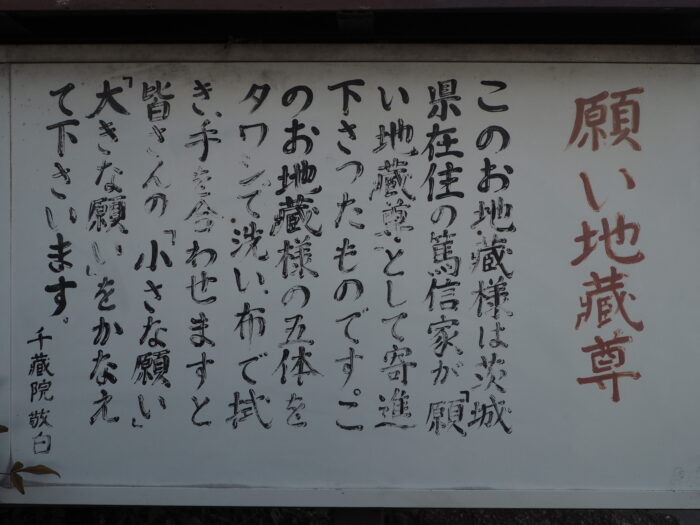 願い地蔵尊
このお地蔵様は茨城
県在住の篤信家が「願
い地蔵尊」として寄進
下さったものです。こ
のお地蔵様の五体を
タワシで洗い、布で拭
き、手を合わせますと
皆さんの「小さな願い」
「大きな願い」をかなえ
て下さいます。
千蔵院 敬白